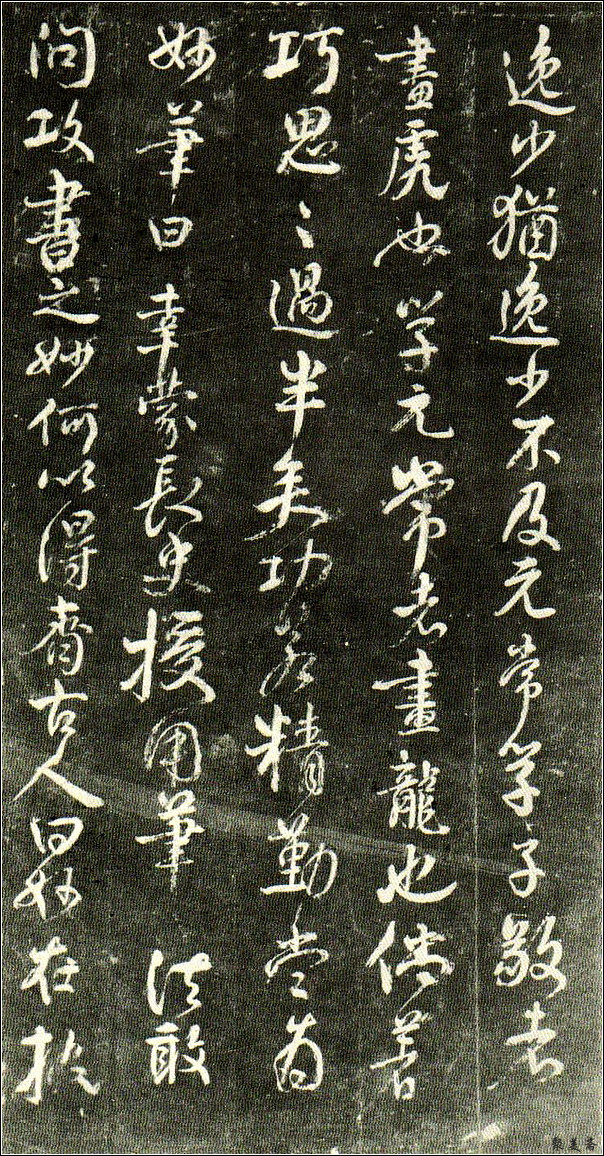 逸少猶逸少不及元常学子敬者
畫虎也学元常者畫龍也倘著
巧思〻過半矣功若精勤當為
妙筆曰幸蒙長史授用筆法敢
問攻書之妙何以得齊古人曰妙在執
聚美斋